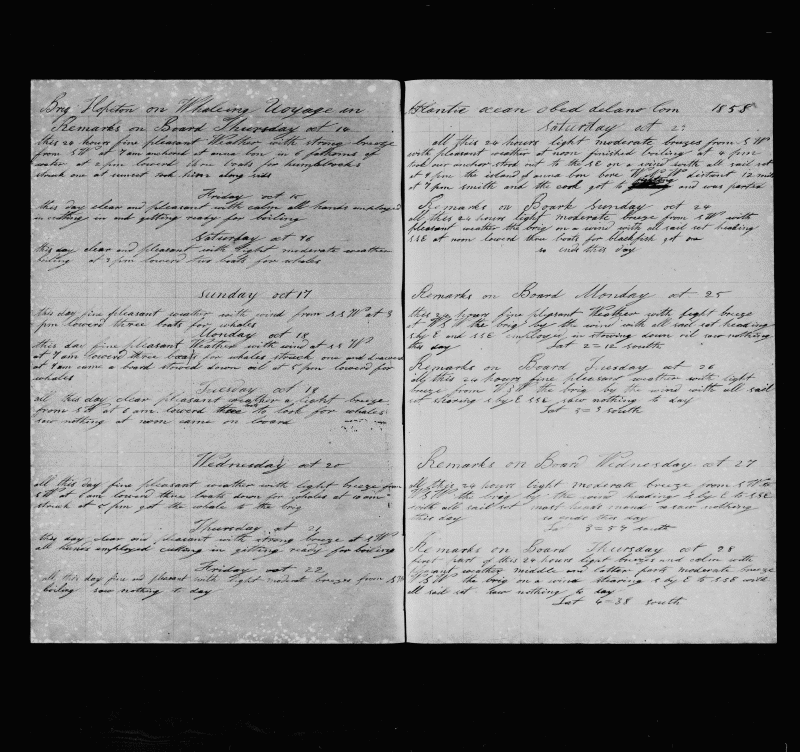 Brig Hopeton on Whaleing Voyage in
Remarks on Board Thursday oct 14
this 24 hours fine pleasant Weather with strong breeze
from SW at 7 am anchored at anna bon in 6 fathoms of
water at 2 pm lowerd thre boats for humpbacks
struck one at sunset took him along side
Friday oct 15
this day clear and pleasant with calm all hands employed
in cutting in and getting ready for boiling
Saturday oct 16
this day clear and pleasant with light moderate weather
boiling at 3 pm lowerd two boats for whales
Sunday oct 17
this day fine pleasant weather with wind from SSW at 3
pm lowerd three boats for whales
Monday oct 18
this day fine pleasant Weather with wind at SSW
at 7 am lowerd three boats for whales struck one and
at 9 am came a board stowed down oil at 5 pm lowerd for
whales
Tuesday oct 19
all this day clear pleasant weather a light breeze
from SW at 6 am lowerd to look for whales
saw nothing at noon came on board
Wednesday oct 20
all this day fine pleasant weather with light breeze from
SW at 6 am lowerd three boats down for whales at 10 am
struck at 5 pm got the whale to the brig
Thursday oct 21
this day clear and pleasant with strong breeze at SSW
all hands employed cutting in getting ready for boiling
Friday oct 22
all this day fine and pleasant with light moderate breezes from SW
boiling saw nothing to day
Atlantic ocean obed delano Com 1858
Saturday oct 23
all this 24 hours light moderate breezes from SW
with pleasant weather at noon finished boiling at 4 pm
took our anchor stood out to the SE on a wind with all sail set
at 9 pm the island of anna bon bore WNW distant 12 miles
at 7 pm smith and the cook got to and was parted
Remarks on Board Sunday oct 24
all this 24 hours light moderate breeze from SW with
pleasant weather the brig on a wind with all sail set heading
SSE at noon lowerd three boats for blackfish got one
so ends this day
Remarks on Board Monday oct 25
this 24 hours fine pleasant Weather with light breeze
at WSW the brig by the wind with all sail set heading
S by E and SSE employed in stowing down oil saw nothing
this day Lat 2=12 south
Remarks on Board Tuesday oct 26
all this 24 hours fine pleasant weather with light
breeze from WSW the brig by the wind with all sail
set stearing S by E SSE saw nothing to day
Lat 3=3 south
Remarks on Board Wednesday oct 27
all this 24 hours light moderate breeze from SW to
WSW the brig by the wind heading S by E to SSE
with all sail set mast heads mand saw nothing
this day so ends this day
Lat 3=54 south
Remarks on Board Thursday oct 28
first part of this 24 hours light breezes and calm with
pleasant weather middle and latter parts moderate breeze
WSW the brig on a wind stearing S by E to SSE with
all sail set saw nothing to day
Lat 4=38 south